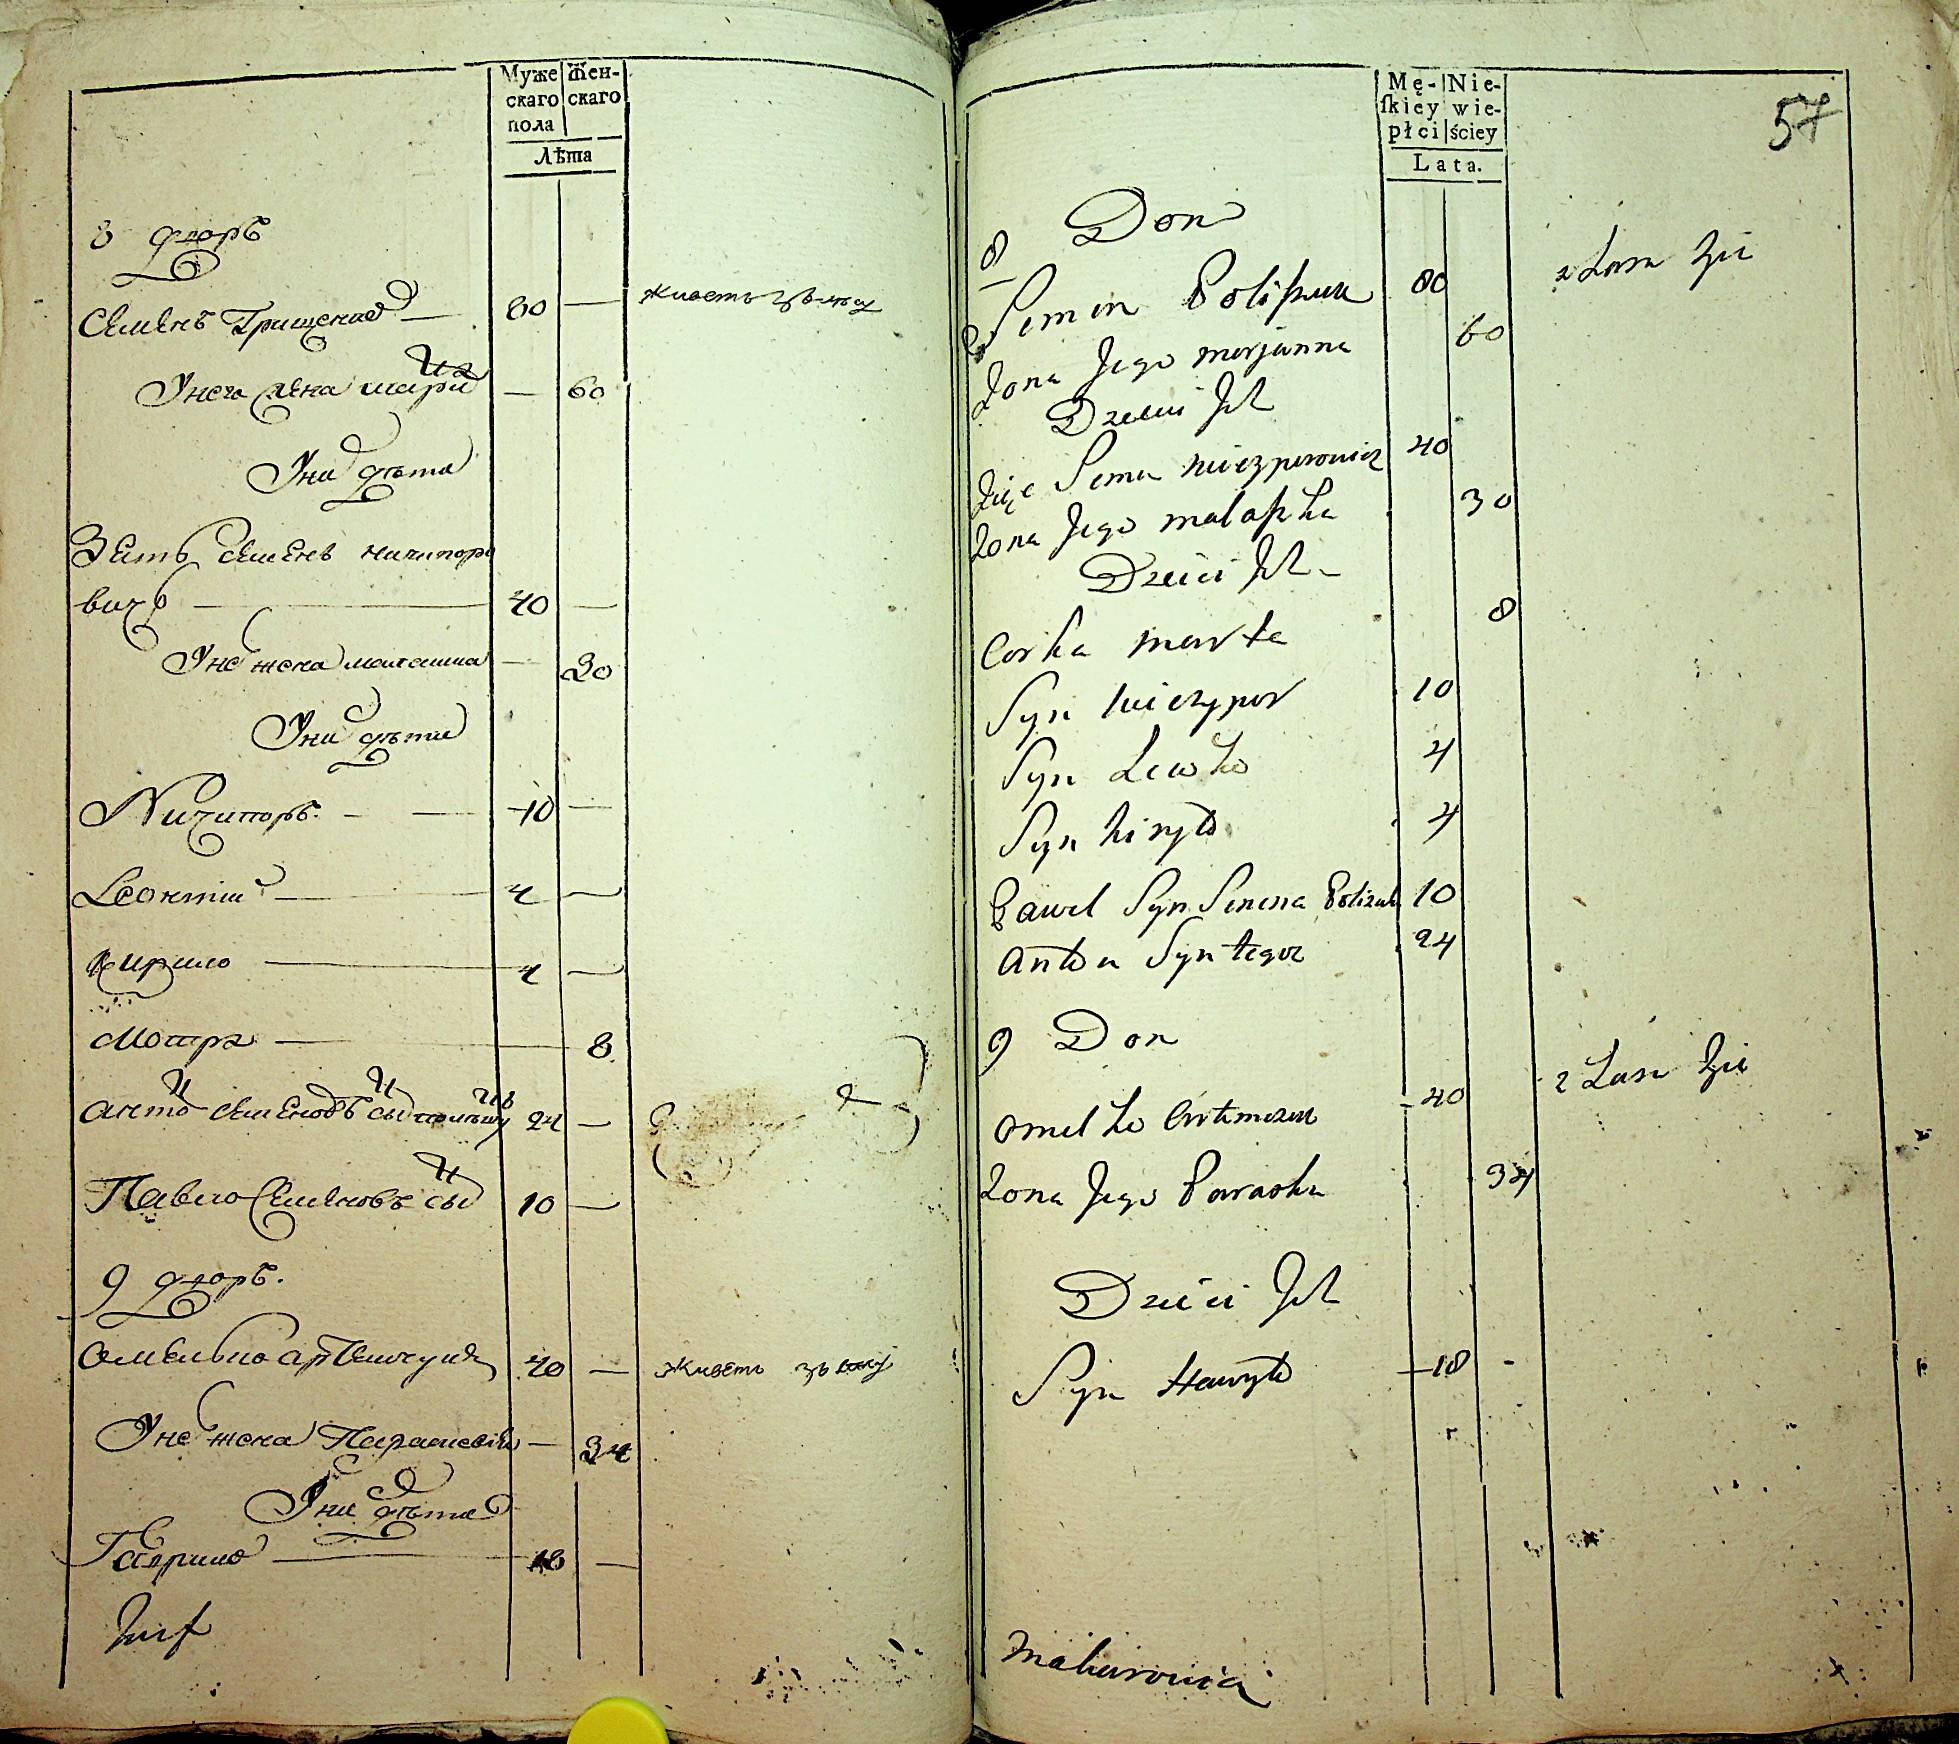 Муже
скаго
пола
Жен-
скаго
Лѣта
8 дворъ
Семенъ Грищенко — 80 — живетъ зъ лѣсу
У него жена Мариѧна — 60
У них дѣти
Зять Семенъ Ничипоро
вичъ — 40 —
У нѣ жена Малашка — 30
У них дѣти
Ничипоръ. — — 10 —
Леонтій — 4 —
Кирило — 4 —
Мотра — 8
Антонъ Семеновъ сынъ 24 —
Павло Семеновъ сынъ 10 —
9 дворъ.
Омелько Артемчукъ 40 — Живетъ зъ лѣсу
У нѣ жена Параскевія — 34
У них дѣти
Гаврило — 18 —
Mę-
ſkiey
płci
Nie-
wie-
ściey
Lata.
57
8 Dom
Semen Poliszuk 80 z Lasu żyie
Żona Jego Marjanna 60
Dzieci Jch
Zięć Semen Niczyporowicz 40
Żona Jego Małaszka 30
Dzieci Jch
Corka Marta 8
Syn Niczypor 10
Syn Lewko 4
Syn Kiryło 4
Paweł Syn Semena Poliszuk 10
Anton Syn tegoż 24
9 Dom
Omelko Artimczuk 40 z Lasu żyie
Żona Jego Paraska 34
Dzieci Jch
Syn Hawryło 18